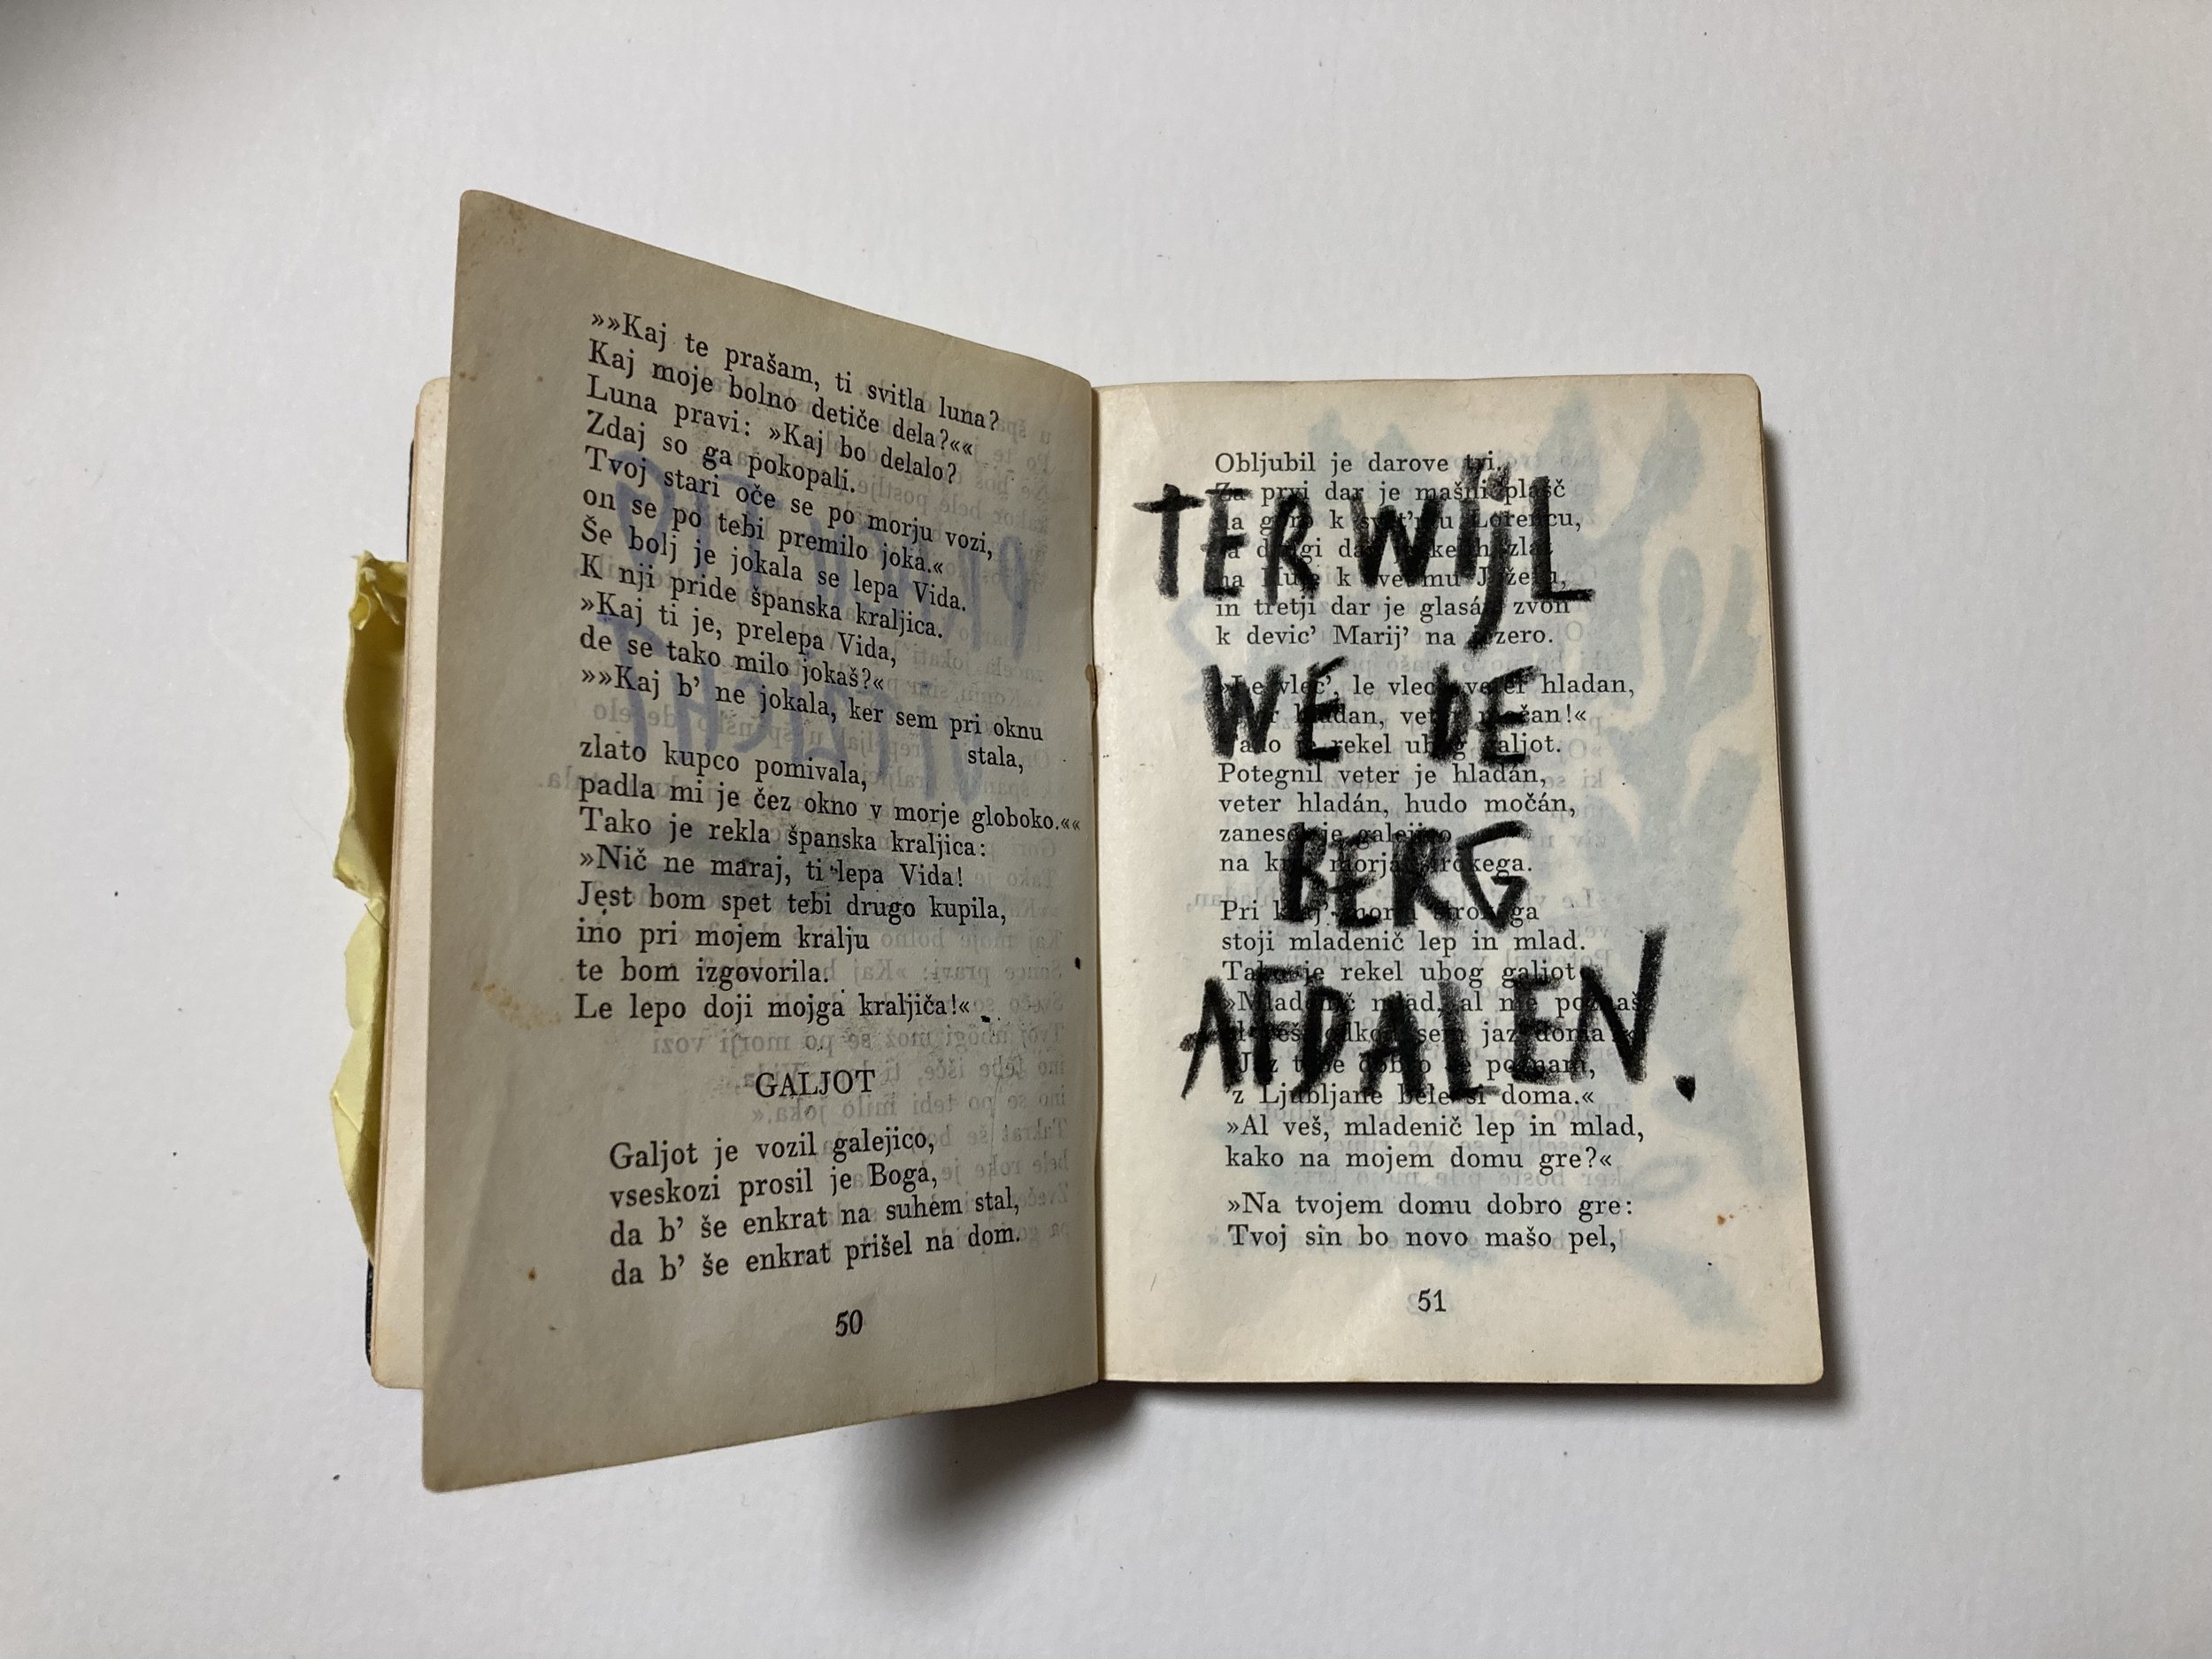 »»Kaj te prašam, ti svitla luna?
Kaj moje bolno detiče dela?««
Luna pravi: »Kaj bo delalo?
Zdaj so ga pokopali.
Tvoj stari oče se po morju vozi,
on se po tebi premilo joka.«
Še bolj je jokala se lepa Vida.
K nji pride španska kraljica.
»Kaj ti je, prelepa Vida,
de se tako milo jokaš?«
»»Kaj b' ne jokala, ker sem pri oknu
stala,
zlato kupco pomivala,
padla mi je čez okno v morje globoko.««
Tako je rekla španska kraljica:
»Nič ne maraj, ti lepa Vida!
Jest bom spet tebi drugo kupila,
ino pri mojem kralju
te bom izgovorila.
Le lepo doji mojga kraljiča!«
GALJOT
Galjot je vozil galejico,
vseskozi prosil je Boga,
da b' še enkrat na suhem stal,
da b' še enkrat prišel na dom.
50
Obljubil je darove tri.
Za prvi dar je mašni plašč
k Lorencu,
in tretji dar je glasán zvon
k devic' Marij' na
le vleci veter hladan,
hladan, veter močan!«
Tako je rekel ubog galjot.
Potegnil veter je hladán,
veter hladán, hudo močán,
zanesel je galejico
na kraj morja širokega.
Pri kraj' morja širokega
stoji mladenič lep in mlad.
Tako je rekel ubog galjot:
»Mladenič mlad, al me poznaš,
sem jaz doma?«
dobro poznam,
z Ljubljane bele si doma.«
»Al veš, mladenič lep in mlad,
kako na mojem domu gre?«
»Na tvojem domu dobro gre:
Tvoj sin bo novo mašo pel,
51
TERWIJL
WE DE
BERG
AFDALEN.